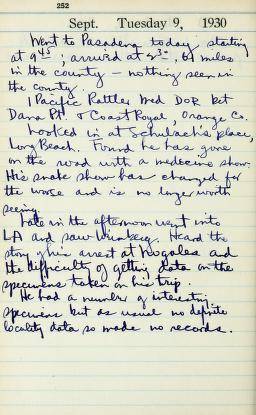 252
Sept. Tuesday 9, 1930
Went to Pasadena today starting
at 9 45, arrived at 2 30, 61 miles
in the county — nothing seen in
the county.
1 Pacific Rattler Med DOR bet
Dana Pt. & Coast Royal, Orange Co.
Looked in at Schulbach's place,
Long Beach. Found he has gone
on the road with a medecine show.
His snake show has changed for
the worse and is no longer worth
seeing.
Late in the afternoon went into
LA and saw Wimberg. Heard the
story of his arrest at Nogales and
the difficulty of getting data on the
specimens taken on his trip.
He had a number of interesting
specimens but as usual no definite
locality data so made no records.